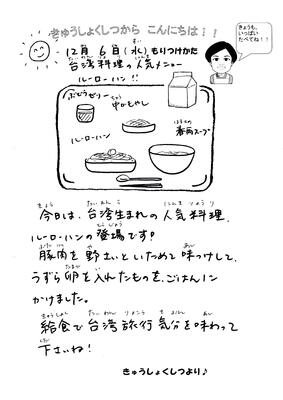 きゅうしょくしつから こんにちは!!
きょうも、
いっぱい
たべてね!!
12月 6日(水)もりつけかた
台湾料理の人気メニュー
ルーローハン!!
ぶどうゼリー
中かもやし
ルーローハン
春雨スープ
今日は、台湾生まれの人気料理、
ルーローハンの登場です!
豚肉を野さいといためて味つけして、
うずら卵を入れたものを、ごはんに
かけました。
給食で台湾旅行気分を味わって
下さいね!
きゅうしょくしつより♪